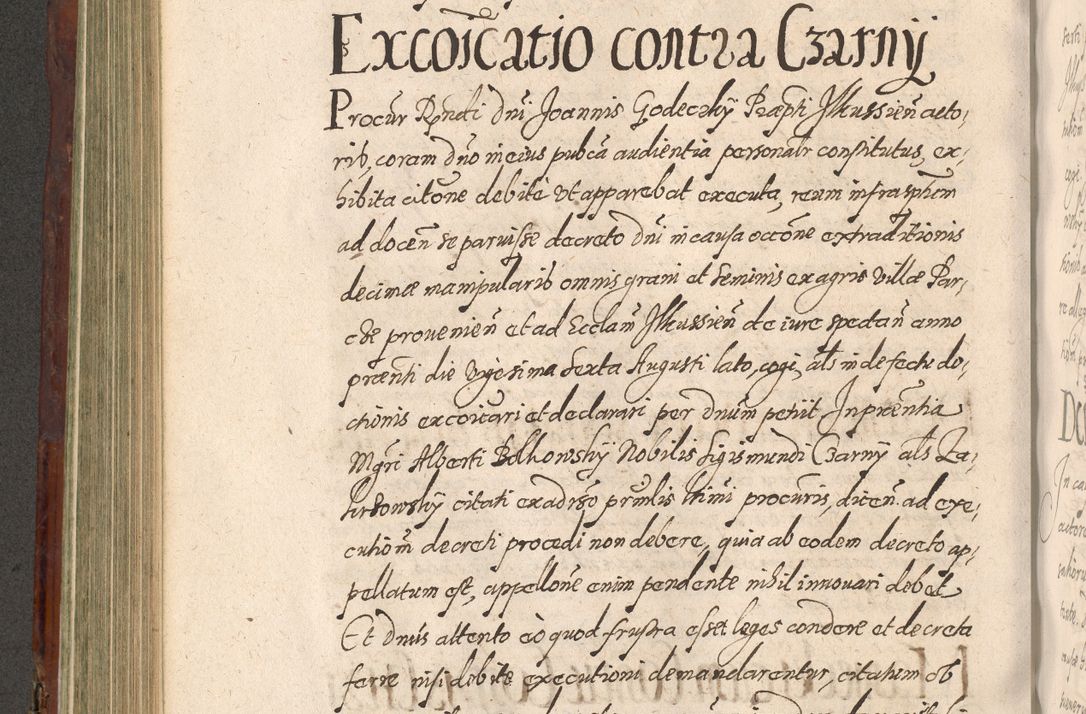 Excoicatio contra Czarnÿ
Procur Rndi dni Joannis Godeczkÿ Præpti Jlkussien acto,
rib, coram dno in eius pubca audientia personalr constitutus, ex,
hibita citone debite ut apparebat executa, reum infrasptem
ad docen se paruisse decreto dni in causa occone extraditionis
decimæ manipularib omnis grani et seminis ex agris villæ Par,
che provenien et ad Ecclam Jlkussien de iure spectan anno
præenti die vigesima sexta Augusti lato, cogi, als in defectu do,
ctionis excoicari et declarari per dnum petiit. In præntia
Mgri Alberti Bolkowskÿ Nobilis Sigismundi Czarnÿ als Za,
kirsowskÿ citati ex adrso prnlis ltimi procuris, dicen ad exe,
cutiom decreti procedi non debere, quia ab eodem decreto ap,
pellatum est, appellone enim pendente nihil innovari debet
Et Dnus attento eo quod frustra esset leges condere et decreta
ferre nisi debite executioni demandarentur, citatum ob